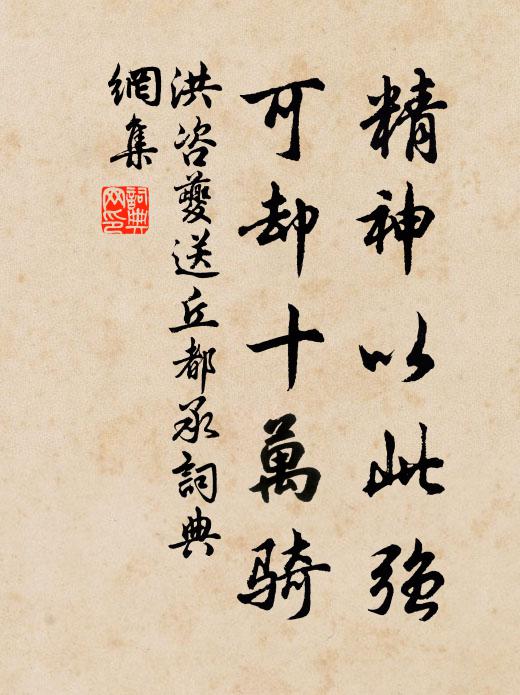 精神以此强
可却十萬騎
洪咨夔送丘都承詞典
網集
詞典
网印